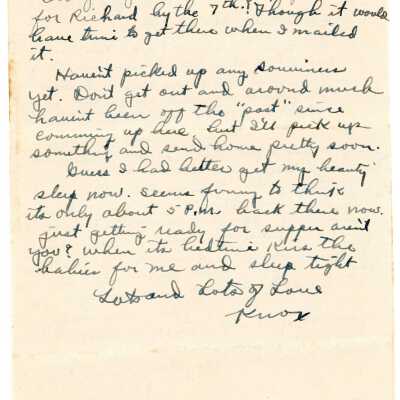 for Richard by the 7th? Though it would
have time to get there when I mailed
it.
Havent picked up any souviners
yet. Don't get out and around much
havent been off the "post" since
comming up here, but I'll pick up
something and send home pretty soon.
Guess I had better get my beauty
sleep now. Seems funny to think
its only about 5 P.M. back there now.
just getting ready for supper aren't
you? When its bedtime Kiss the
babies for me and sleep tight
Lots and Lots of Love
Knox